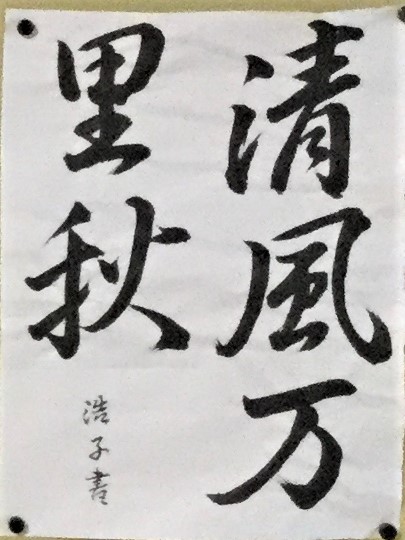 清風万
里秋
浩子書